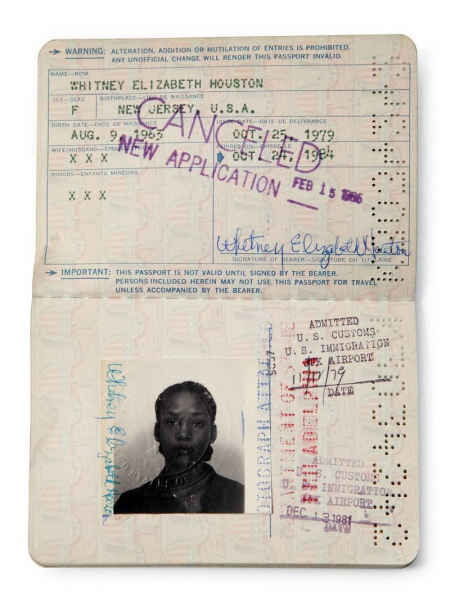 → WARNING: ALTERATION, ADDITION OR MUTILATION OF ENTRIES IS PROHIBITED.
ANY UNOFFICIAL CHANGE WILL RENDER THIS PASSPORT INVALID.
NAME—NOM
WHITNEY ELIZABETH HOUSTON
SEX—SEXE BIRTHPLACE—LIEU DE NAISSANCE
F NEW JERSEY, U.S.A.
BIRTH DATE—DATE DE NAISSANCE ISSUE DATE—DATE DE DELIVRANCE
AUG. 9, 1963 OCT. 25, 1979
WIFE/HUSBAND
X X X OCT. 24, 1984
MINORS—ENFANTS MINEURS
X X X
CANCELED
NEW APPLICATION
FEB 15 1986
Whitney Elizabeth Houston
SIGNATURE OF BEARER—SIGNATURE DU TITULAIRE
→ IMPORTANT: THIS PASSPORT IS NOT VALID UNTIL SIGNED BY THE BEARER.
PERSONS INCLUDED HEREIN MAY NOT USE THIS PASSPORT FOR TRAVEL
UNLESS ACCOMPANIED BY THE BEARER.
Whitney Elizabeth
ADMITTED
U. S. CUSTOMS
U. S. IMMIGRATION
AIRPORT
DATE
PHILADELPHIA
ADMITTED
U. S. CUSTOMS
IMMIGRATION
AIRPORT
DEC 13 1981
DATE